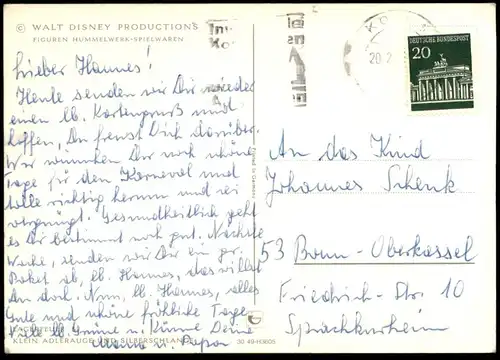 © WALT DISNEY PRODUCTIONS
FIGUREN HUMMELWERK-SPIELWAREN
Lieber Hannes!
Heute senden wir Dir wieder
einen lb. Kartengruß und
hoffen, Du freust Dich darüber.
Wir wünschen Dir noch schöne
Tage für den Karneval und
tolle richtig herum und sei
vergnügt. Gesundheitlich geht
es Dir bestimmt noch gut. Nächste
Woche, senden wir Dir ein gr.
Paket ab, lb. Hannes, das willst
Du doch. Nun, lb. Hannes, alles
Gute und schöne fröhliche Tage
Viele lb. Grüße u. Küsse Deine
Mama u. Papa
KLEIN ADLERAUGE UND SILBERSCHLANGE
30 49-H3605
20.2
DEUTSCHE BUNDESPOST
20
An das Kind
Johannes Schenk
53 Bonn-Oberkassel
Friedrich-Str. 10
Sprachkurheim